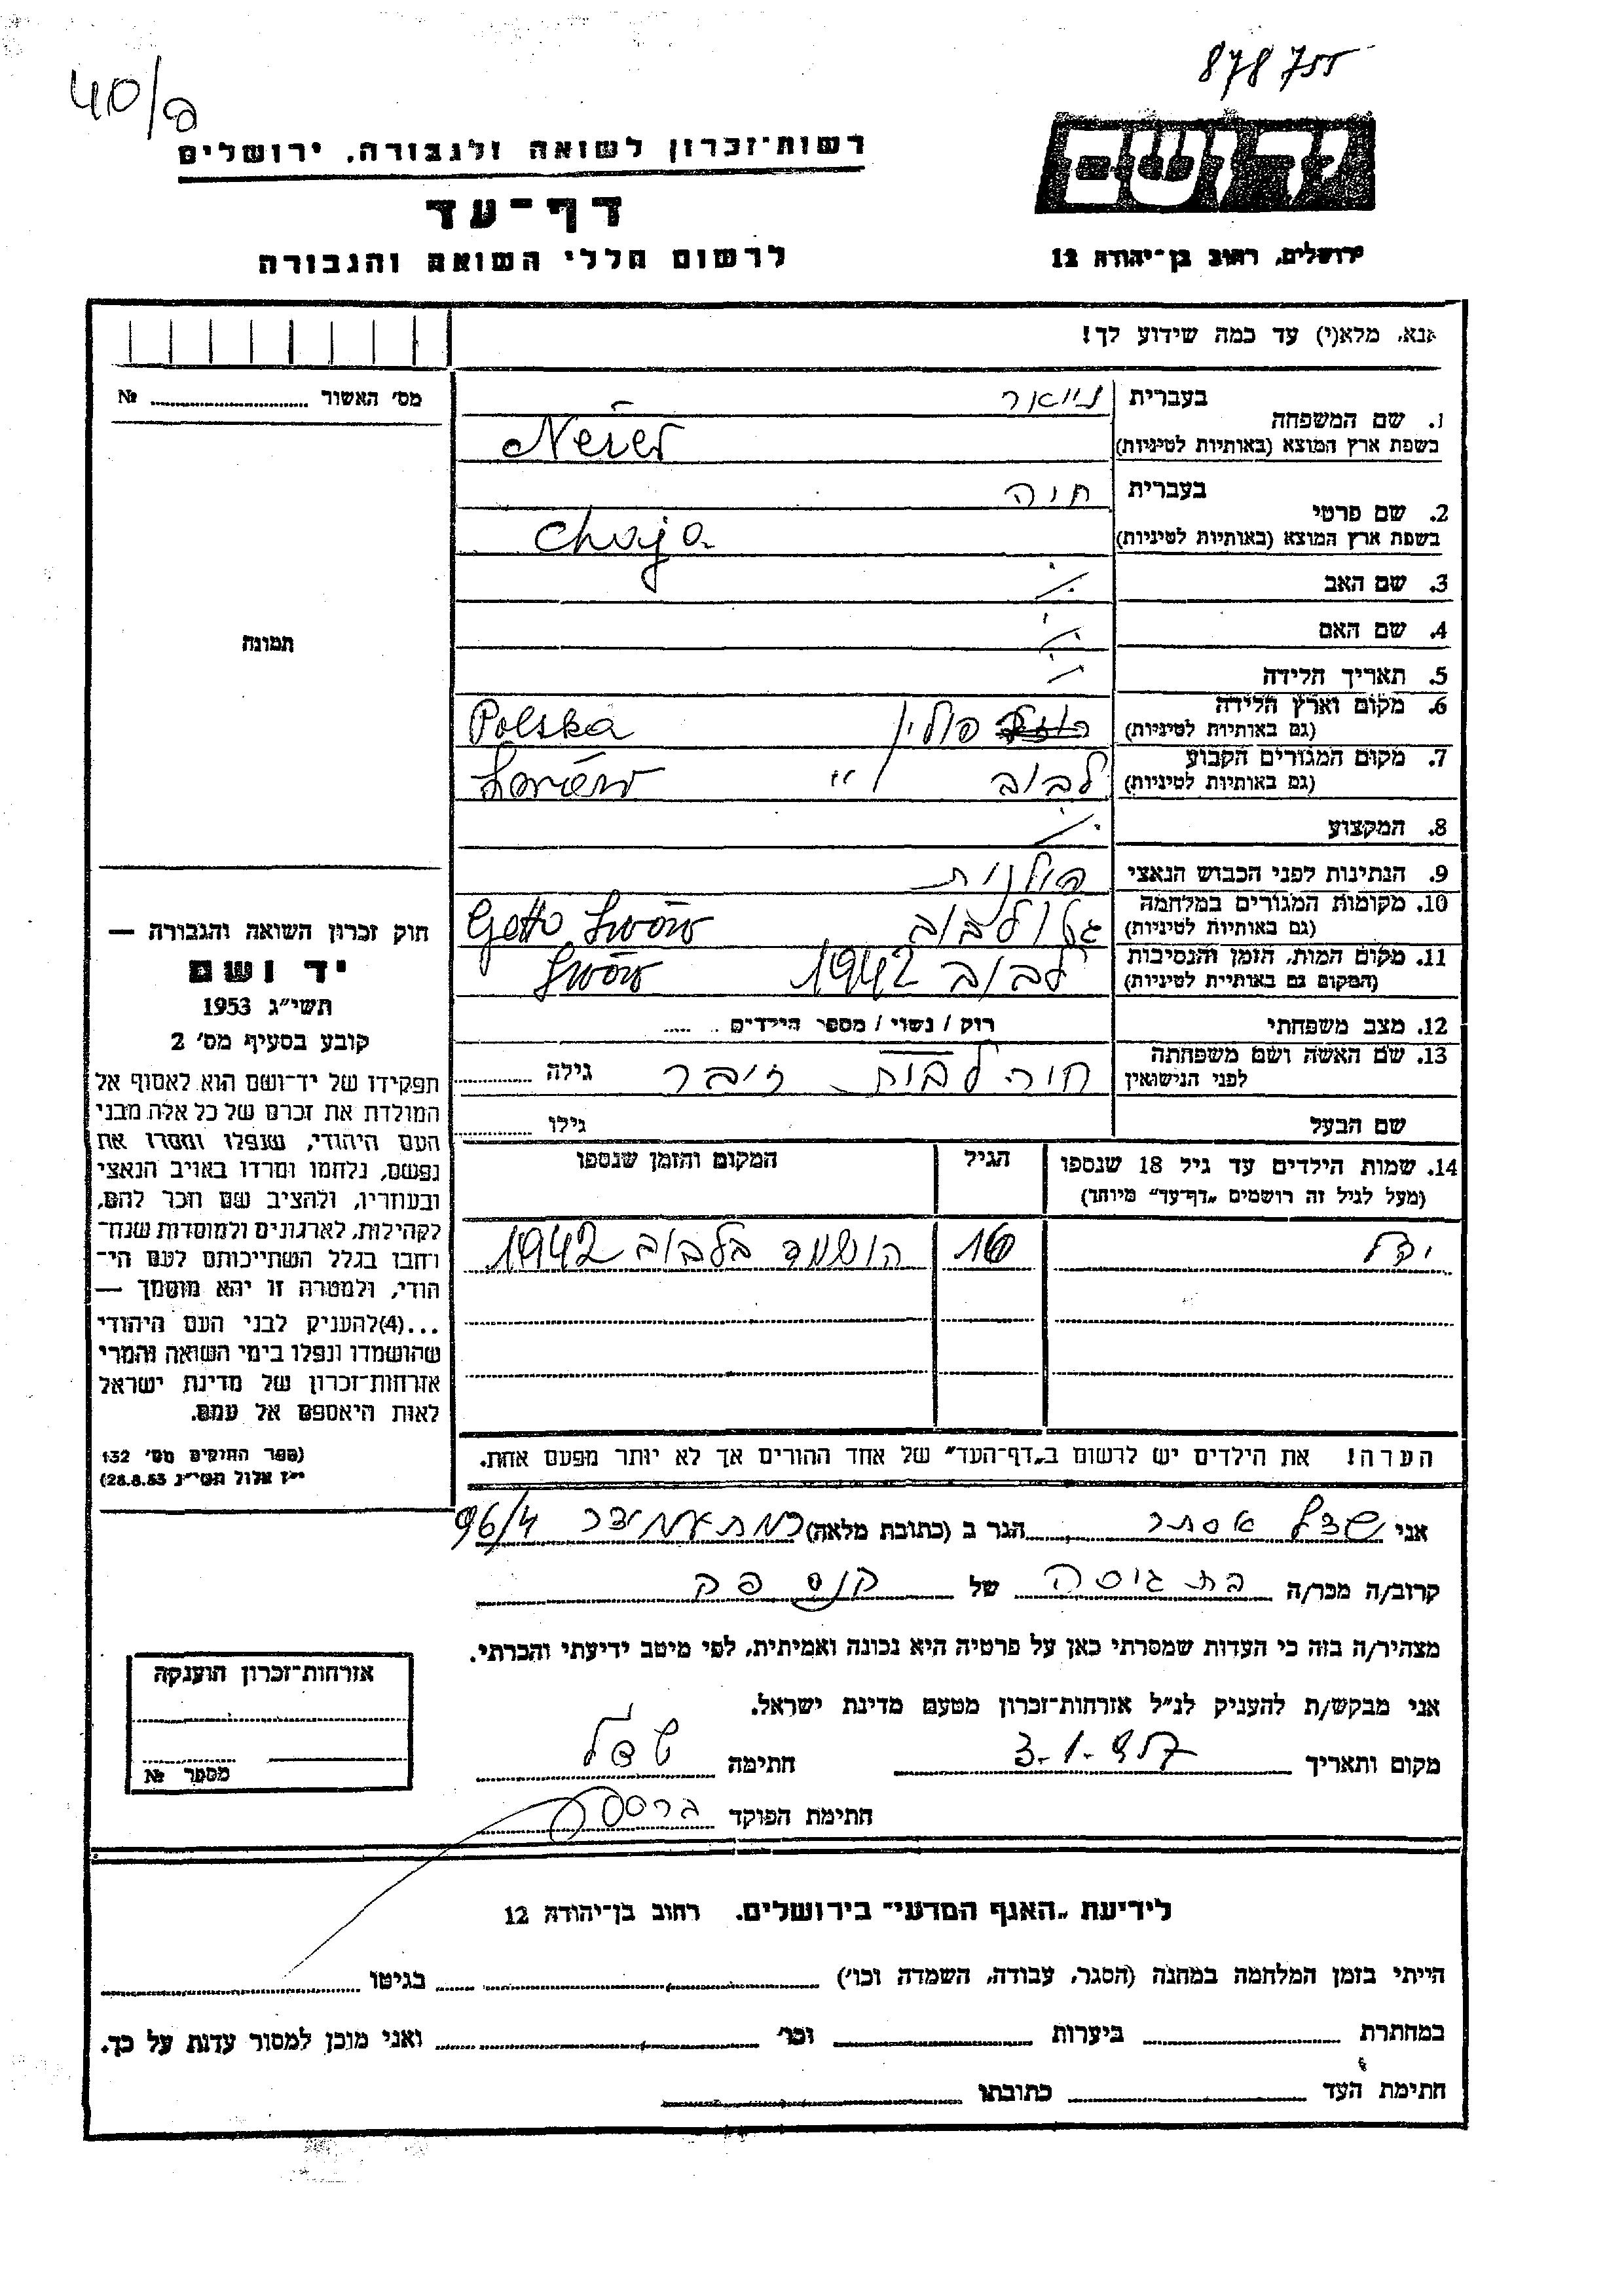 878755
40/פ
יד ושם
ירושלים, רחוב בן־יהודה 12
רשות־זכרון לשואה ולגבורה, ירושלים
דף־עד
לרשום חללי השואה והגבורה
אנא, מלא(י) עד כמה שידוע לך!
מס׳ האשור № 
1. שם המשפחה
בעברית
בשפת ארץ המוצא (באותיות לטיניות)
2. שם פרטי
בעברית חיה
בשפת ארץ המוצא (באותיות לטיניות) Chaja
3. שם האב
4. שם האם
5. תאריך הלידה
6. מקום וארץ הלידה פולין Polska
(גם באותיות לטיניות)
7. מקום המגורים הקבוע לבוב / " Lwów
(גם באותיות לטיניות)
8. המקצוע
9. הנתינות לפני הכבוש הנאצי פולנית
10. מקומות המגורים במלחמה גטו לבוב Getto Lwów
(גם באותיות לטיניות)
11. מקום המות, הזמן והנסיבות לבוב 1942 Lwów
(המקום גם באותיות לטיניות)
12. מצב משפחתי רוק / נשוי / מספר הילדים
13. שם האשה ושם משפחתה
לפני הנישואין חיה לבית זיבר גילה
שם הבעל גילו
14. שמות הילדים עד גיל 18 שנספו
(מעל לגיל זה רושמים „דף־עד״ מיוחד)
הגיל
המקום והזמן שנספו
16 הושמד בלבוב 1942
הערה! את הילדים יש לרשום ב„דף־העד״ של אחד ההורים אך לא יותר מפעם אחת.
תמונה
חוק זכרון השואה והגבורה —
יד ושם
תשי״ג 1953
קובע בסעיף מס׳ 2
תפקידו של יד־ושם הוא לאסוף אל
המולדת את זכרם של כל אלה מבני
העם היהודי, שנפלו ומסרו את
נפשם, נלחמו ומרדו באויב הנאצי
ובעוזריו, ולהציב שם וזכר להם,
לקהילות, לארגונים ולמוסדות שנח־
רחבו בגלל השתייכותם לעם הי־
הודי, ולמטרה זו יהא מוסמך —
...(4)להעניק לבני העם היהודי
שהושמדו ונפלו בימי השואה והמרי
אזרחות־זכרון של מדינת ישראל
לאות היאספם אל עמם.
(ספר החוקים מס׳ 132
י״ז אלול תשי״ג 28.8.53)
אני אסתר הגר ב (כתובת מלאה) 96/4
קרוב/ה מכר/ה בת גיסה של
מצהיר/ה בזה כי העדות שמסרתי כאן על פרטיה היא נכונה ואמיתית, לפי מיטב ידיעתי והכרתי.
אני מבקש/ת להעניק לנ״ל אזרחות־זכרון מטעם מדינת ישראל.
מקום ותאריך 3.1.957 חתימה
חתימת הפוקד
אזרחות־זכרון הוענקה
מספר №
לידיעת „האגף המדעי״ בירושלים. רחוב בן־יהודה 12
הייתי בזמן המלחמה במחנה (הסגר, עבודה, השמדה וכו׳) בגיטו
במחתרת ביערות וכו׳ ואני מוכן למסור עדות על כך.
חתימת העד כתובתו